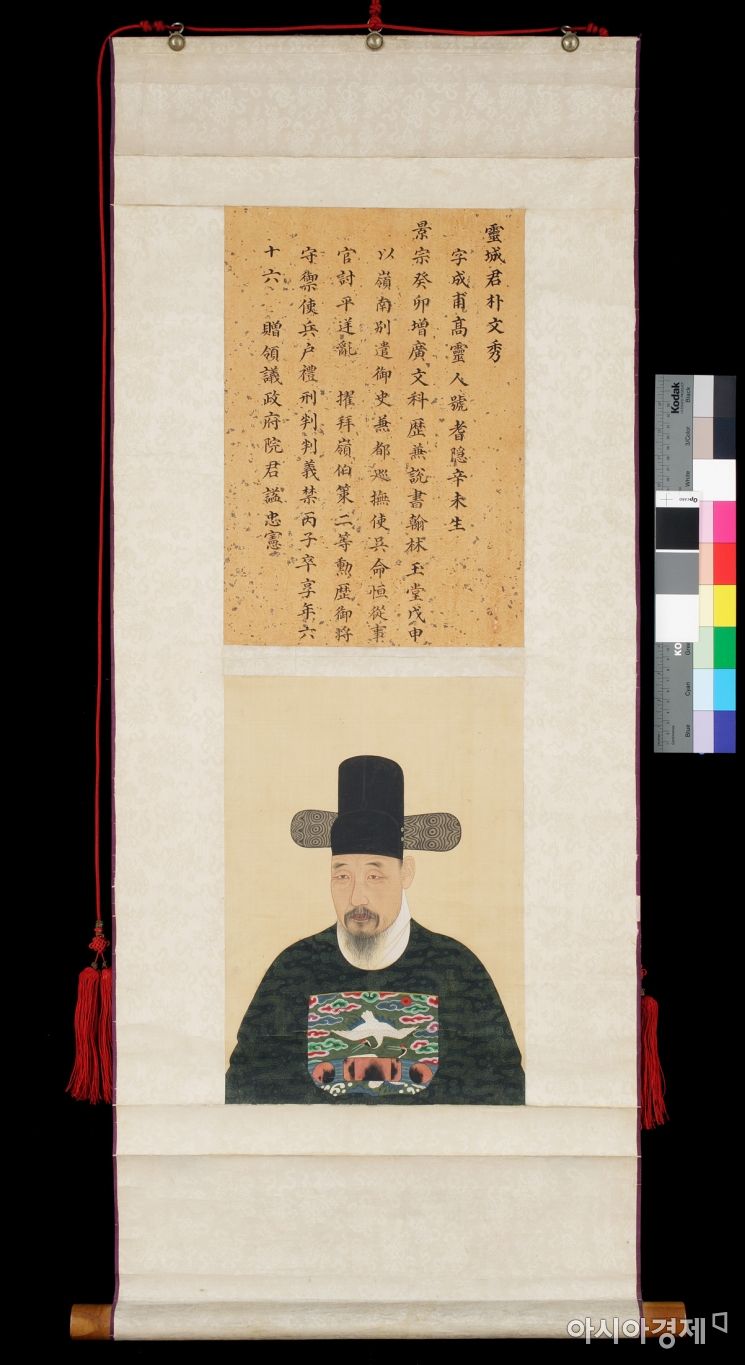 靈城君朴文秀
字成甫高靈人號耆隱辛未生
景宗癸卯增廣文科歷兼說書翰林玉堂戊申
以嶺南別遣御史兼都巡撫使吳命恒從事
官討平逆亂 擢拜嶺伯策二等勳歷御將
守禦使兵户禮刑判判義禁丙子卒享年六
十六 贈領議政府院君謚忠憲
Kodak
Black
3/Color
White
Cyan
Blue
아시아경제